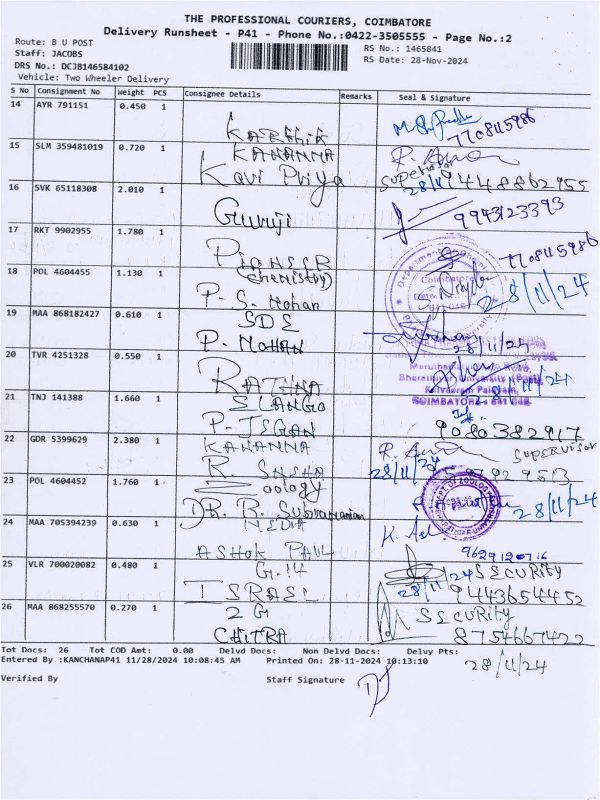 THE PROFESSIONAL COURIERS, COIMBATORE
Delivery Runsheet - P41 - Phone No.:0422-3505555 - Page No.:2
Route: B U POST
RS No.: 1465841
Staff: JACOBS
RS Date: 28-Nov-2024
DRS No.: DCJB146584102
Vehicle: Two Wheeler Delivery
S No Consignment No Weight PCS Consignee Details Remarks Seal & Signature
14 AYR 791151 0.450 1 Karthik 770845986
15 SLM 359481019 0.720 1 KANANNA
Kavi Priya Supervisor 28/11 9448862955
16 SVK 65118308 2.010 1 Guruji 9943123393
17 RKT 9902955 1.780 1 PIONEER 770845986
(chemistry)
18 POL 4604455 1.130 1 P. S. Mohan 28/11/24
19 MAA 868182427 0.610 1 SDE
P. MOHAN 28/11/24
20 TVR 4251328 0.550 1 RATHNA 28/11/24
COIMBATORE - 641 046
21 TNJ 141388 1.660 1 ELANGO
P. JEGAN 9080382917
22 GDR 5399629 2.380 1 KANANNA SUPERVISOR
R. SNSHA 28/11/24
23 POL 4604452 1.760 1 Zoology
DR. R. Subramanian 28/11/24
24 MAA 705394239 0.630 1 MEDIA
ASHOK PAUL 9629120716
25 VLR 700020082 0.480 1 G.14 SECURITY
ISRAEL 28/11/24 9443654452
26 MAA 868255570 0.270 1 2 G SECURITY
CHITRA 8754667422
Tot Docs: 26 Tot COD Amt: 0.00 Delvd Docs: Non Delvd Docs: Delvy Pts:
28/11/24
Entered By :KANCHANAP41 11/28/2024 10:08:45 AM Printed On: 28-11-2024 10:13:10
Verified By Staff Signature